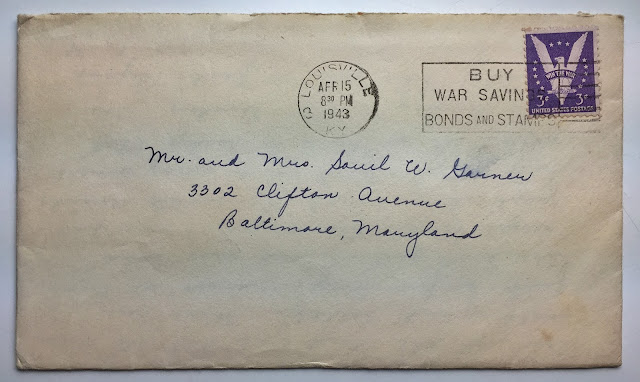 LOUISVILLE
APR 15
8 30 PM
1943
KY.
BUY
WAR SAVINGS
BONDS AND STAMPS
WIN THE WAR
3¢ 3¢
UNITED STATES POSTAGE
Mr. and Mrs. Souil W. Garner
3302 Clifton Avenue
Baltimore, Maryland